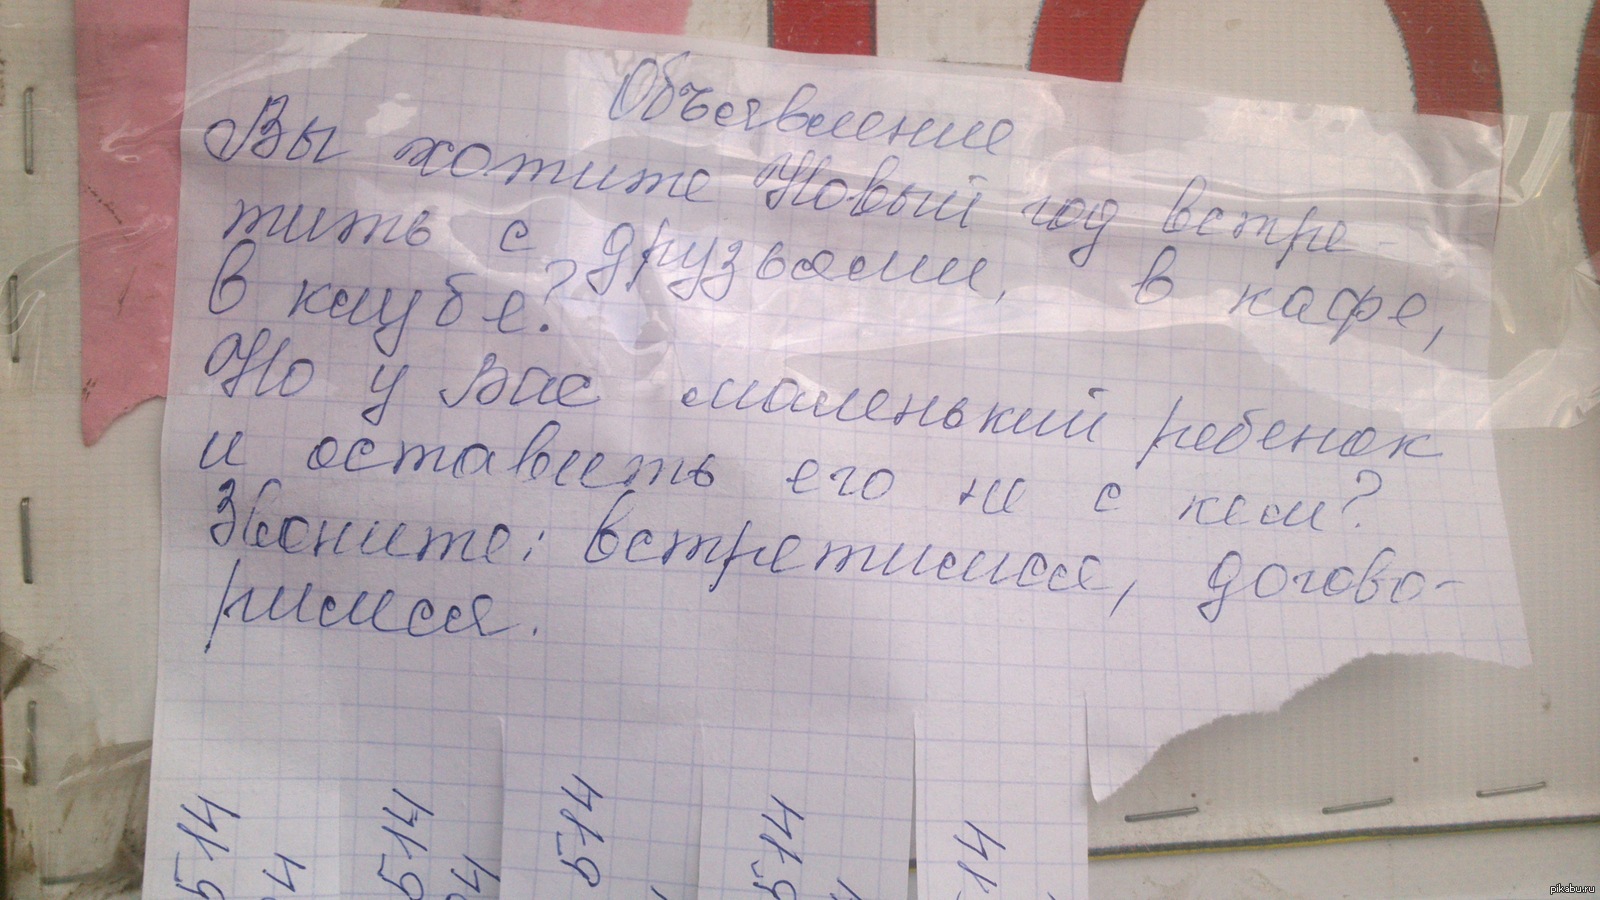 Объявление
Вы хотите Новый год встре-
тить с друзьями, в кафе,
в клубе?
Но у Вас маленький ребенок
и оставить его не с кем?
Звоните: встретимся, догово-
римся.
514
514
514
514
pikabu.ru